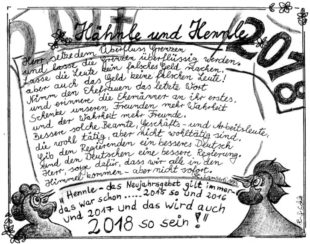 Hähnle und Hennle
2018
Herr, setze dem Überfluss Grenzen
und lasse die Grenzen überflüssig werden.
Lasse die Leute kein falsches Geld machen,
aber auch das Geld keine falschen Leute!
Nimm den Ehefrauen das letzte Wort
und erinnere die Ehemänner an ihr erstes.
Schenke unseren Freunden mehr Wahrheit
und der Wahrheit mehr Freunde.
Bessere solche Beamte, Geschäfts- und Arbeitsleute,
die wohl tätig, aber nicht wohltätig sind.
Gib den Regierenden ein besseres Deutsch
und den Deutschen eine bessere Regierung.
Herr, sorge dafür, dass wir alle in den
Himmel kommen - aber nicht sofort.
"Hennle - das Neujahrsgebet gilt immer-
das war schon..... 2015 so und 2016
und 2017 und das wird auch
2018 so sein!"